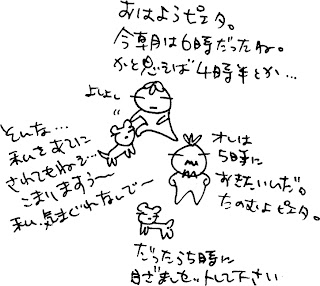 おはようピエタ。
今朝は6時だったね。
かと思えば4時半とか…
よしよし
そんな…
私をあてに
されてもねぇ…
こまりますぅ〜
私、気まぐれなんで〜
オレは
5時に
おきたいんだ。
たのむよピエタ。
だったら5時に
目ざましセットして下さい